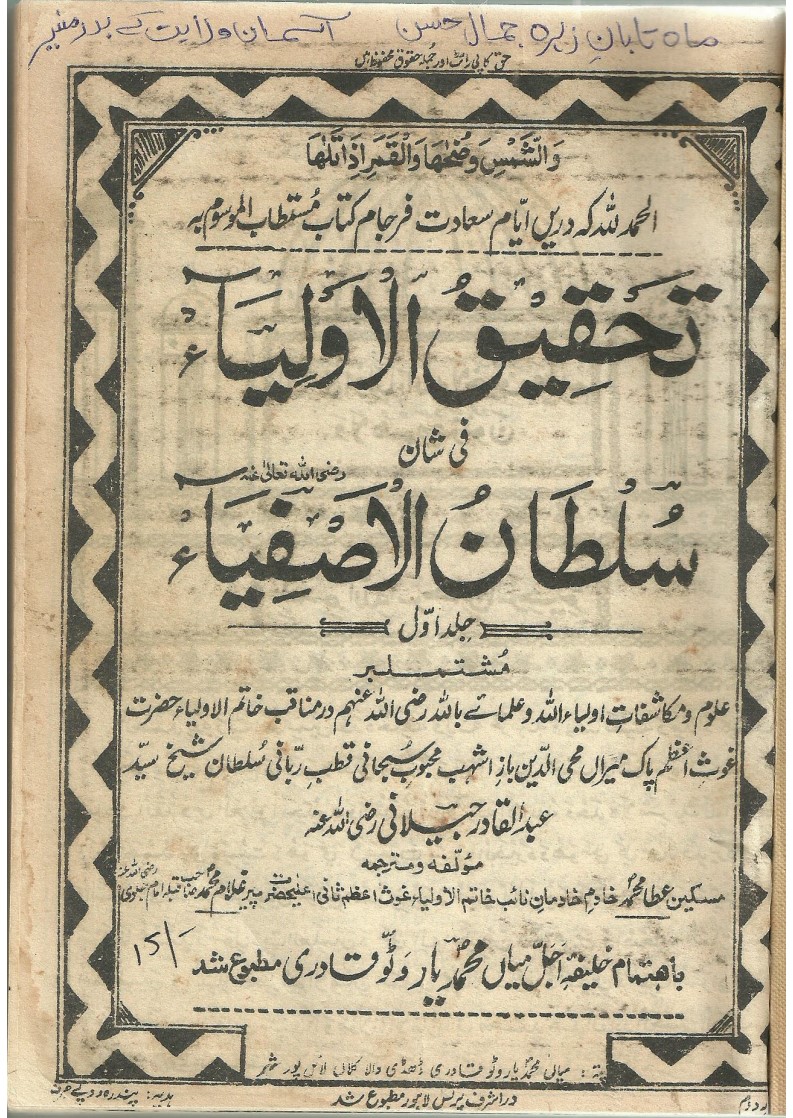 ماہ تابانِ زہرہ جمال حسن آسمان ولایت کے بدر منیر
حق کاپی رائٹ اور جملہ حقوق محفوظ ہیں
وَالشَّمْسِ وَضُحٰهَا وَالْقَمَرِ اِذَا تَلٰهَا
الحمد للہ کہ دریں ایّام سعادت فرجام کتاب مُستطاب الموسوم بہ
تَحقِیقُ الاَولِیَاء
فی شان
رضی اللہ تعالیٰ عنہ
سُلْطَانُ الاَصْفِیَاء
جلد اوّل
مُشتملبر
علوم و مکاشفاتِ اولیاء اللہ و علمائے باللہ رضی اللہ عنہم در مناقب خاتم الاولیاء حضرت
غوثِ اعظم پاک میراں محی الدّین بازِ اشہب محبوبِ سُبحانی قطبِ ربّانی سُلطان شیخ سیّد
عبدالقادر جیلانی رضی اللہ عنہ
مؤلفہ و مترجمہ
مسکین عطا محمدؐ خادمِ خادمانِ نائب خاتم الاولیاء غوث اعظم ثانی اعلیٰحضرت پیر غلام محمدؐ صاحب قبلہ امام جلوی رضی اللہ عنہ
باہتمام خلیفۂ اجل میاں محمدؐ یار وٹّو قادری مطبوع شد
۱۵/-
پتہ: میاں محمدؐ یار وٹو قادری ڈھڈی والا کلاں لائل پور شہر
ہدیہ: پندرہ روپے صرف در اشرف پریس لاہور مطبوع شد